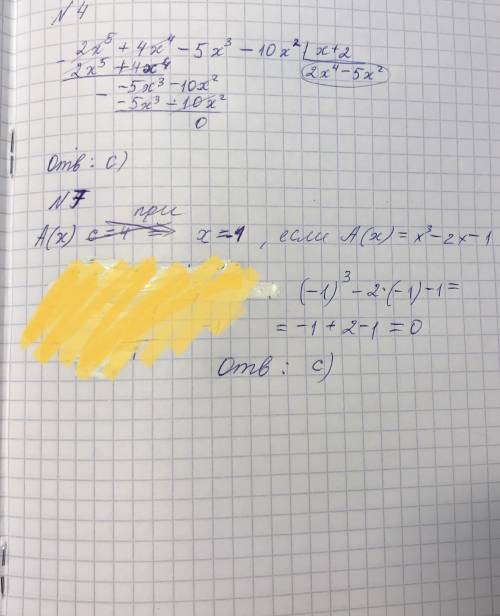 N 4
2x⁵ + 4x⁴ - 5x³ - 10x² | x+2
- 2x⁵ + 4x⁴ 2x⁴ - 5x²
- -5x³ - 10x²
-5x³ - 10x²
0
Отв: С)
N 7
при
A(x) x = -1 , если A(x) = x³ - 2x - 1
(-1)³ - 2·(-1) - 1 =
= -1 + 2 - 1 = 0
Отв: С)